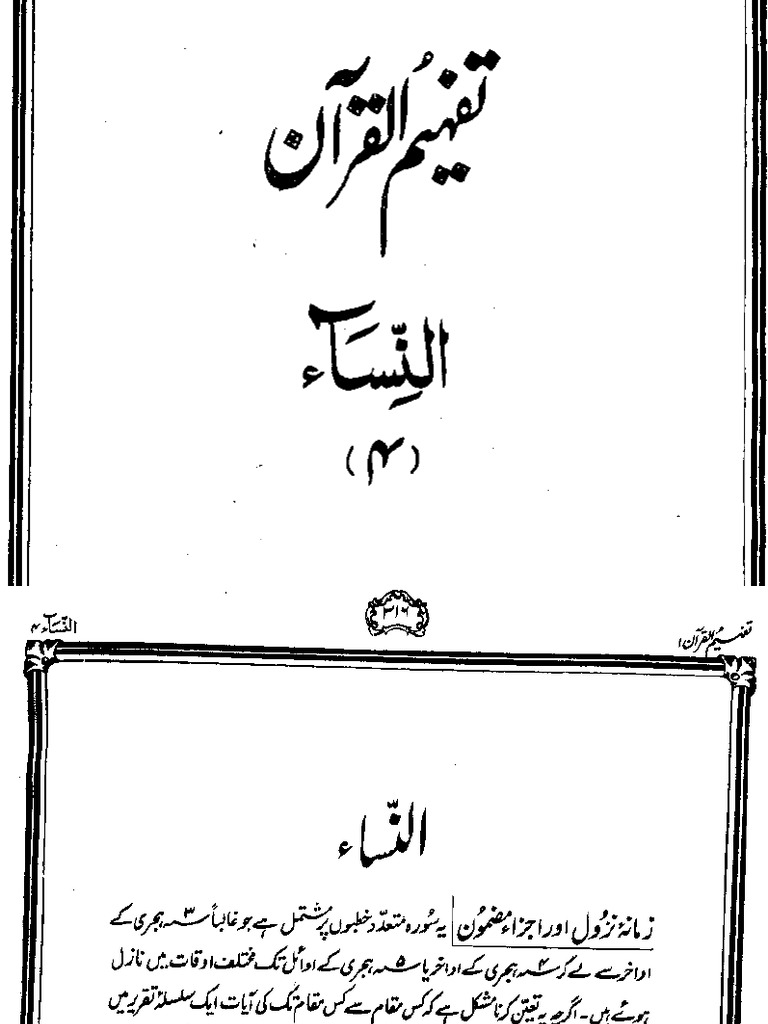 تفہیمُ القرآن
النِّسَآء
(۴)
تفہیم القرآن ۱
۳۱۶
النّسَآء ۴
النّساء
زمانۂ نزُول اور اجزاء مضمُون یہ سُورہ متعدّد خطبوں پر مشتمل ہے جو غالباً سنہ ۳ ہجری کے
اواخر سے لے کر سنہ ۴ ہجری کے اواخر یا سنہ ۵ ہجری کے اوائل تک مختلف اوقات میں نازل
ہوئے ہیں۔ اگرچہ یہ تعیّن کرنا مشکل ہے کہ کس مقام سے کس مقام تک کی آیات ایک سلسلۂ تقریر میں